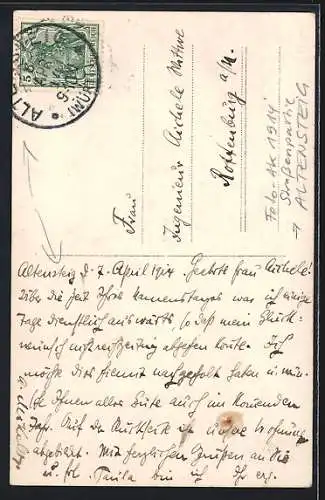 ALTENSTEIG
Frau
Ingenieur Aichele Witwe
Rottenburg a/N.
Foto-AK 1914
Straßenpartie
→ ALTENSTEIG
Altensteig d. 7. April 1914. Geehrte Frau Aichele!
Über die Zeit Ihres Namenstages war ich einige
Tage dienstlich auswärts, so daß mein Glück-
wunsch nicht rechtzeitig abgehen konnte. Ich
möchte dies hiemit nachgeholt haben u. wün-
sche Ihnen alles Gute auch im kommenden
Jahr. Auf der Rückseite ist unsere Wohnung
abgebildet. Mit herzlichen Grüßen an Sie
u. Frl. Paula bin ich Ihr erg.